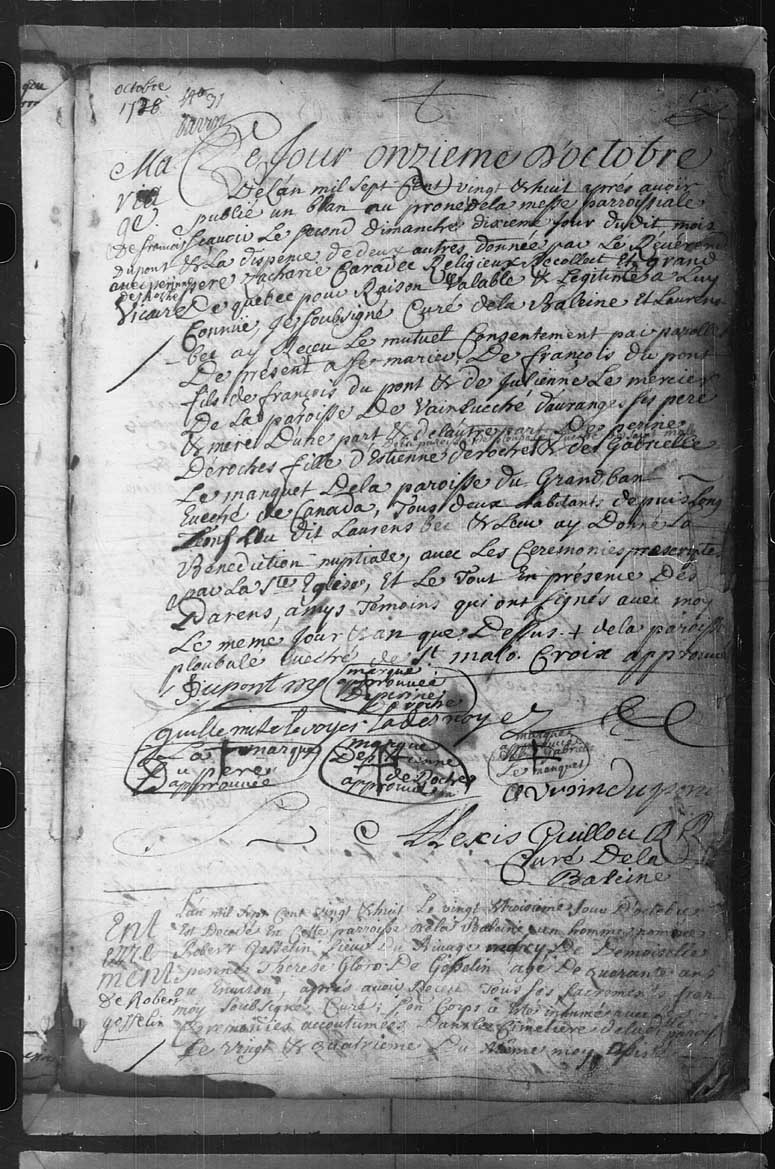 octobre
1728
Mariage
De francois
Dupont
avec perinne
desroches
Ce Jour onzieme D'octobre
De L'an mil sept Cent vingt & huit aprés avoir
publié un Ban au prone de la messe parroissiale
scavoir Le second dimanche dixieme Jour du dit mois
& La dispence de deux autres donnée par Le Révérend
pere zacharie Caradec Religieux Recollect Et grand
Vicaire De quebec pour Raison Valable & Legitime a Luy
Connüe, Je soubsigné Curé de la Baleine et Laurens
bec ay Receu Le mutuel Consentement par parolle
De present a se marier, De françois du pont
fils de françois du pont & de Julienne Le mercier
De La paroisse De Vains Evesché d'auranges ses pere
& mere D'une part & de l'autre part De perine
Deroches fille d'Estienne deroches & de Gabrielle
Le manquet De la paroisse du Grand ban
Evesché de Canada, Tous deux habitants depuis Long
Tems du dit Laurens bec & Leur ay Donné La
Bénédiction nuptiale, avec Les Ceremonies prescriptes
par La Ste Eglise, Et Le Tout En présence Des
Parens, amys Temoins qui ont signés avec moy
Le meme Jour & an que Dessus. + de la paroisse
ploubale Evesché de St malo. Croix approuvé
Dupont
marque
approuvée
De perine
De roche
guillemite levoyer
La marque
Du pere
approuvée
marque
De Etienne
de Roches
approuvée
marque
Gabrielle
Le manquet
dupont
Alexis Guillou
Curé De la
Baleine
Enterrement
De Robert
gosselin
L'an mil sept Cent vingt & huit Le vingt & troisieme Jour D'octobre
Est Decedé En Cette parroisse De la Baleine un homme nommé
Robert Gosselin du Rivage De Demoiselle
perinne Therese De Gosselin agé De quarante ans
ou Environ, aprés avoir Receu Tous ses sacrements par
moy soubsigné Curé; son Corps a été inhumé avec Les
Ceremonies accoutumées Dans Le Cimetiere de la dite paroisse
Le vingt & quatrieme Du même moy